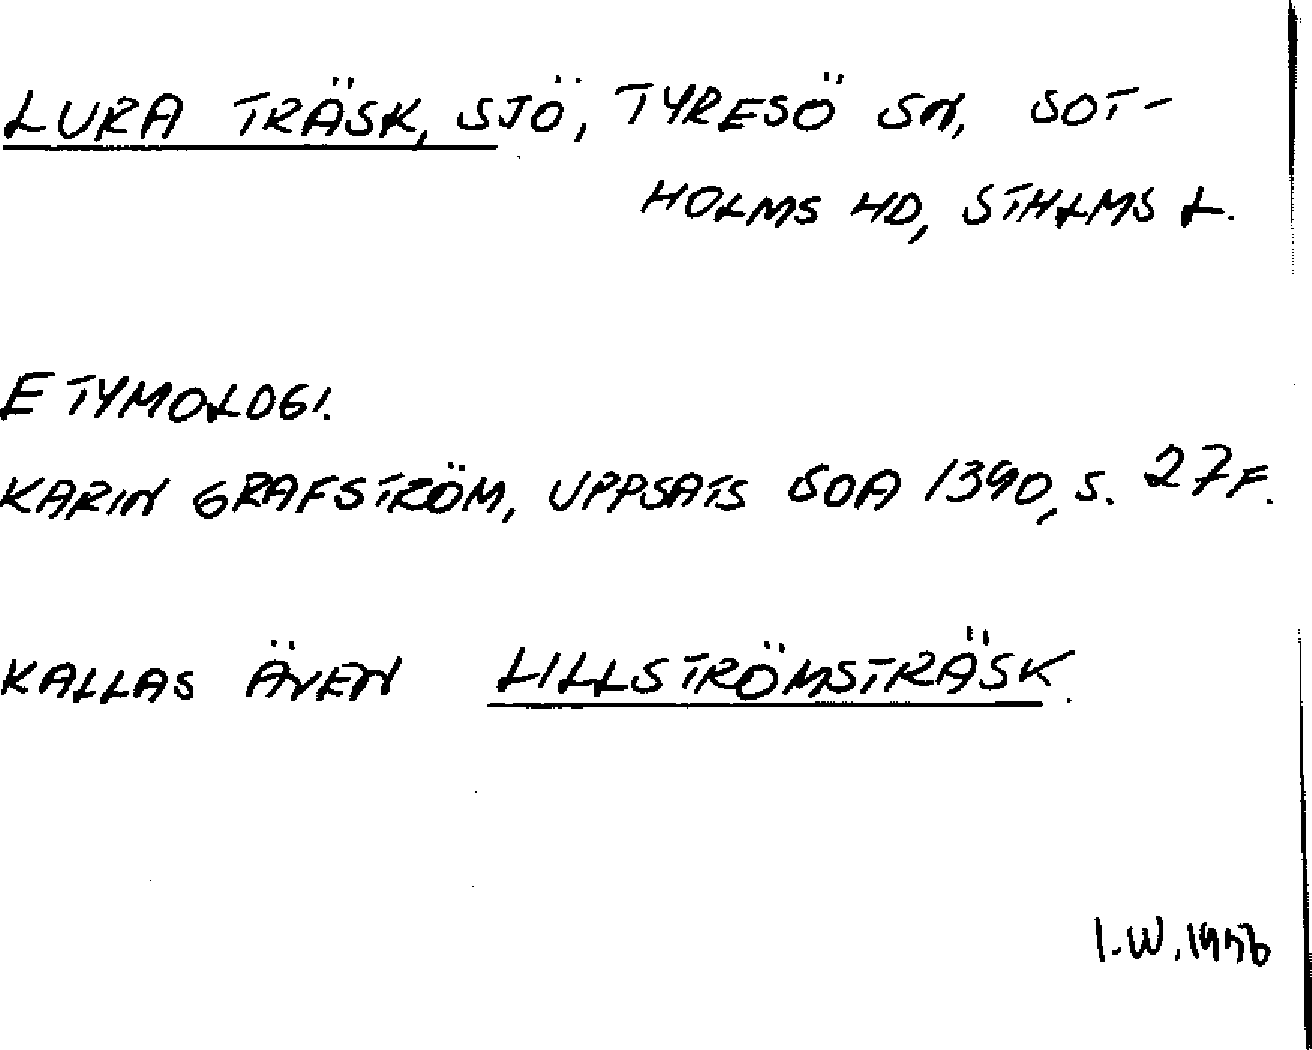 LURA TRÄSK, SJÖ, TYRESÖ SN, SOT-
HOLMS HD, STHLMS L.
ETYMOLOGI.
KARIN GRAFSTRÖM, UPPSATS SOA 1390, S. 27 F.
KALLAS ÄVEN LILLSTRÖMSTRÄSK.
I.W.